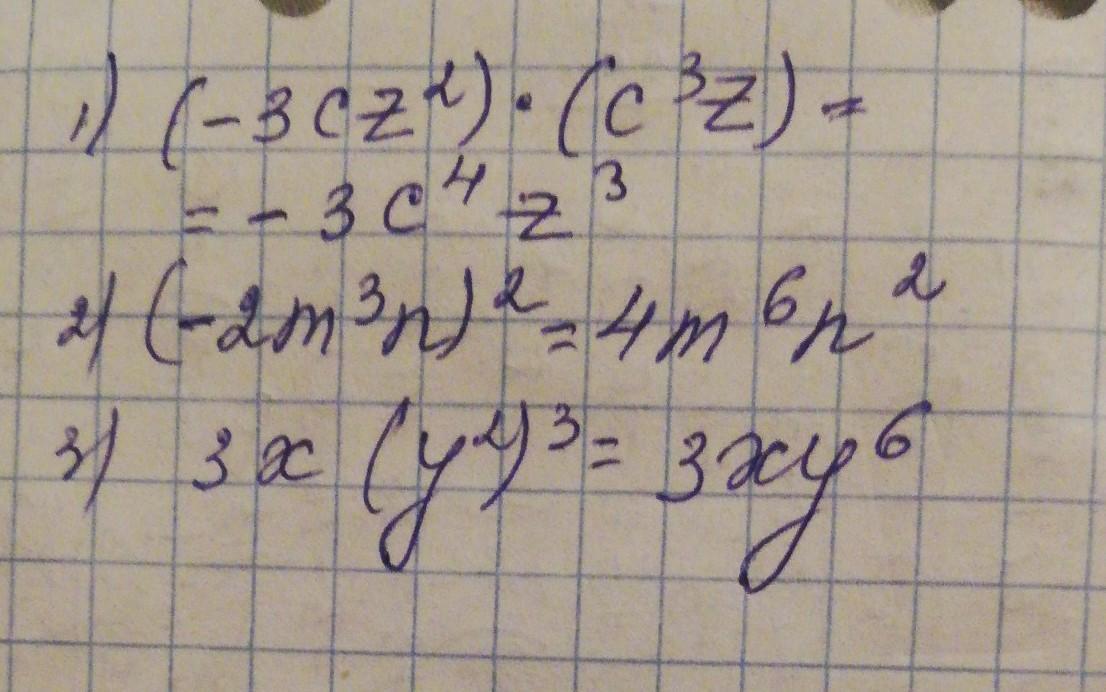 1) (-3cz²)·(c³z)=
=-3c⁴z³
2) (-2m³n)²=4m⁶n²
3) 3x(y²)³=3xy⁶